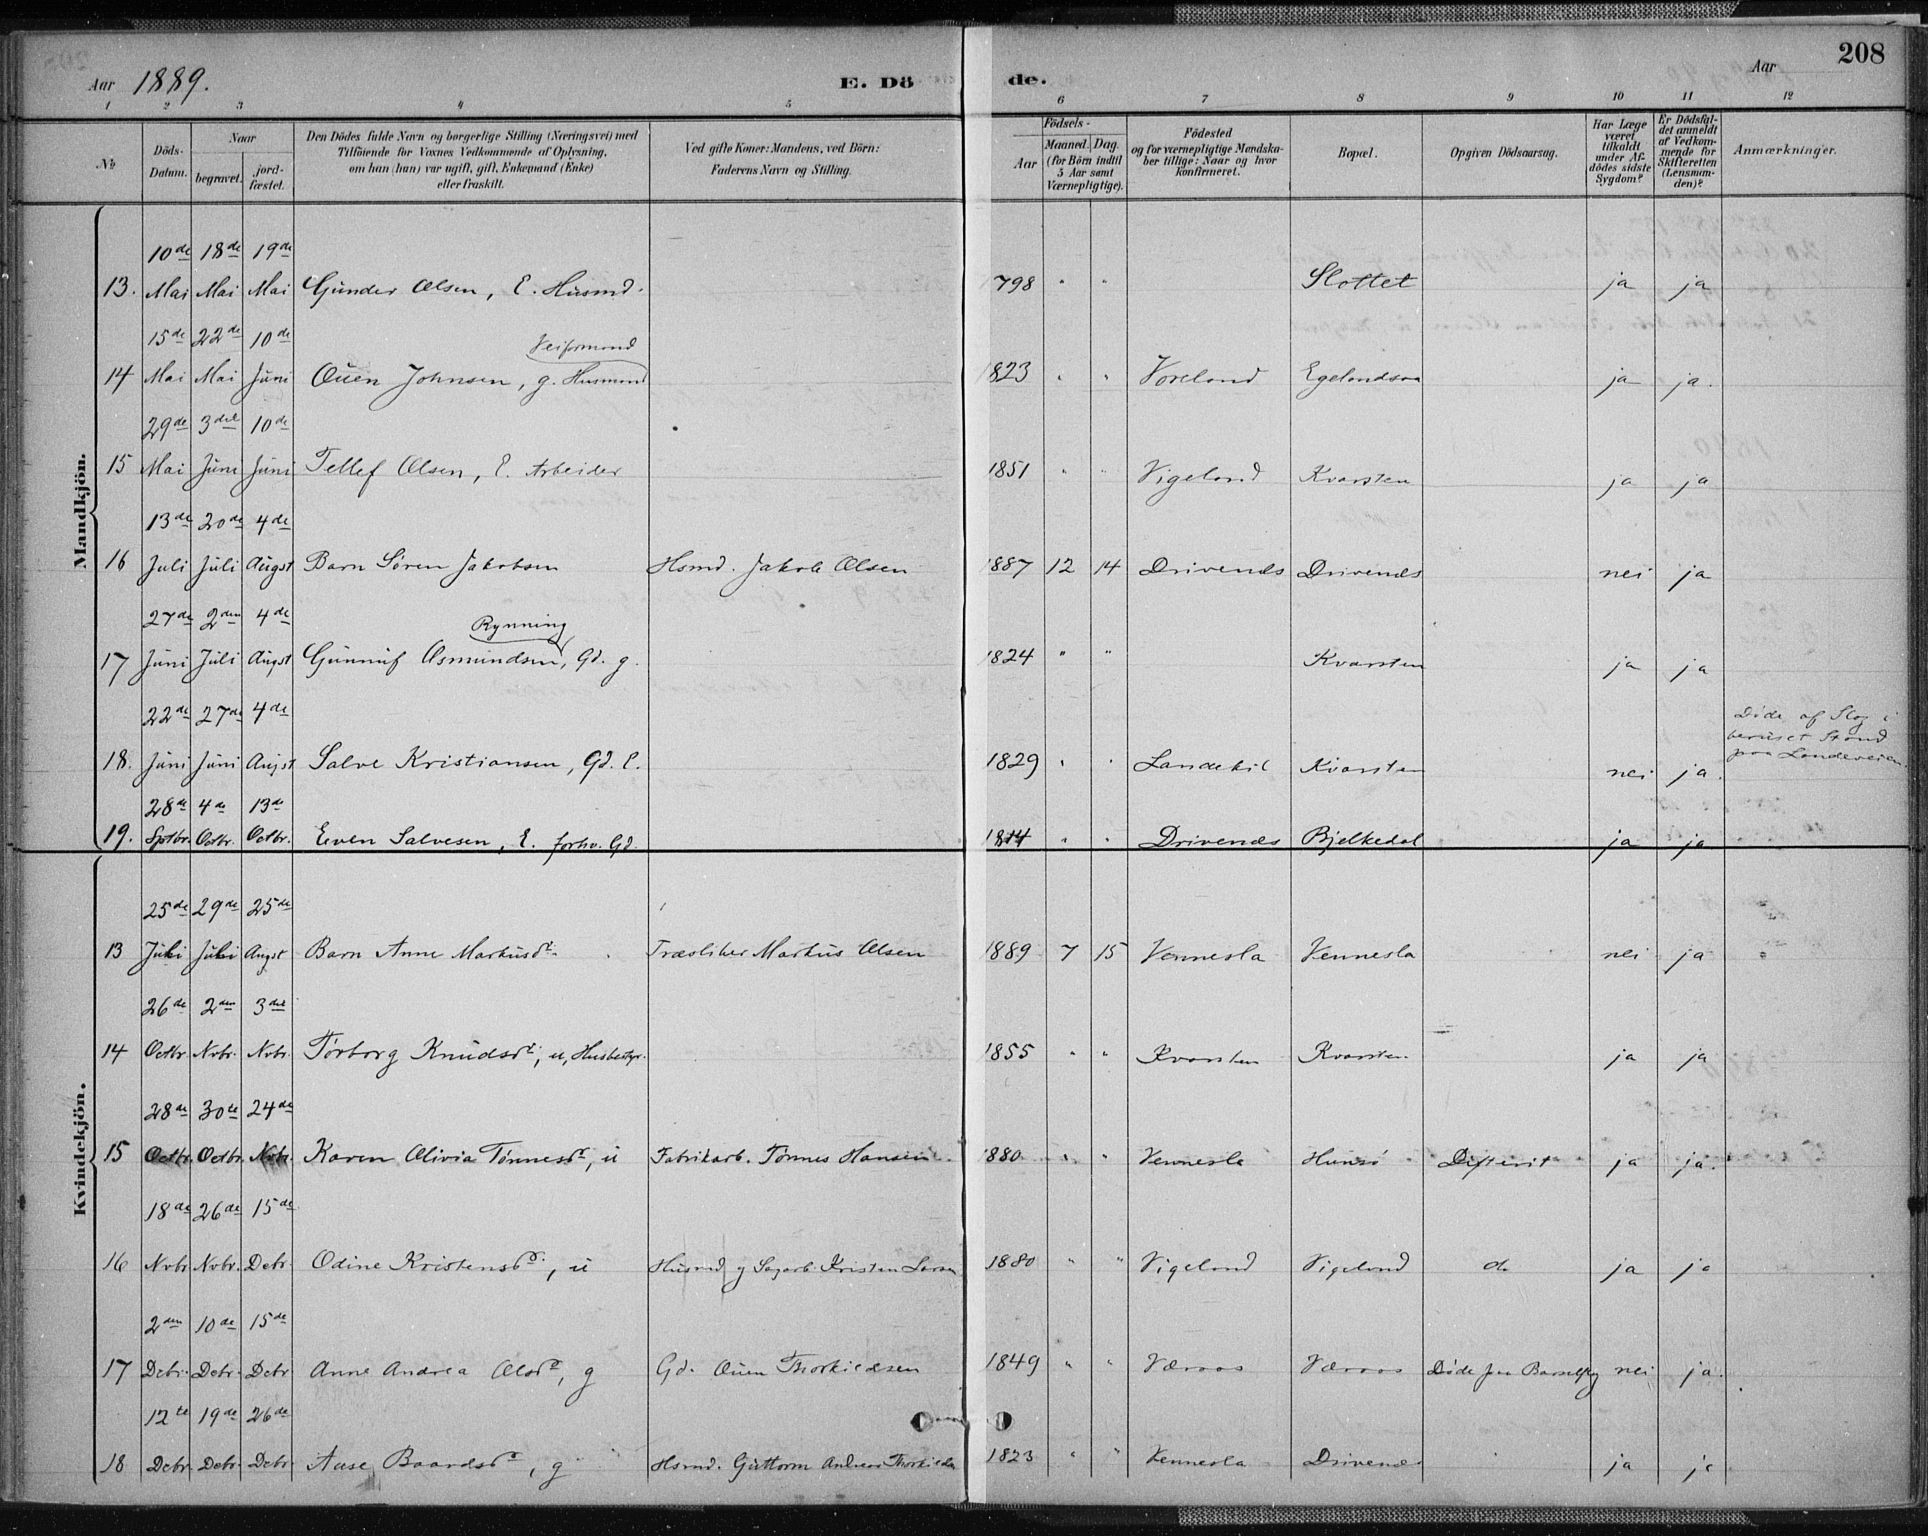 208
Aar 1889. E. Dö de. Aar
1 2 3 4 5 6 7 8 9 10 11 12
№ Döds-Datum. Naar begravet. jord-fæstet. Den Dödes fulde Navn og borgerlige Stilling (Næringsvei) med Tilföiende for Voxnes Vedkommende af Oplysning, om han (hun) var ugift, gift, Enkemand (Enke) eller fraskilt. Ved gifte Koner: Mandens, ved Börn: Faderens Navn og Stilling. Födsels- Aar Maaned. Dag. (for Börn indtil 5 Aar samt Værnepligtige). Födested og for værnepligtige Mandska-ber tillige: Naar og hvor konfirmeret. Bopæl. Opgiven Dödsaarsag. Har Læge været tilkaldt under Af-dödes sidste Sygdom? Er Dödsfal-det anmeldt af Vedkom-mende for Skifteretten (Lensman-den)? Anmærkninger.
Mandkjön.
10de 18de 19de
13. Mai Mai Mai Gunder Olsen, E. Husmd. 1798 " " Slottet ja ja
15de 22de 10de Veiformand
14 Mai Mai Juni Ouen Johnsen, g. Husmand 1823 " " Voreland Egelandsaa ja ja.
29de 3die 10de
15 Mai Juni Juni Tellef Olsen, E. Arbeider 1851 " " Vigeland Kvarsten ja ja
13de 20de 4de
16 Juli Juli Augst Barn Søren Jakobsen Hsmd. Jakob Olsen 1887 12 14 Drivenes Drivenes nei ja
27de 2den 4de Rynning
17 Juni Juli Augst Gunnuf Asmundsen, Gd. g. 1824 " " Kvarsten ja ja
22de 27de 4de Døde af Slag i
beruset Stand
paa Landeveien.
18. Juni Juni Augst Salve Kristiansen, Gd. E. 1829 " " Kvarsten nei ja.
28de 4de 13de
19. Sptbr. Octbr. Octbr. Even Salvesen, E. forhv. Gd. 1814 " " Drivenes Bjelkedal ja ja
Kvindekjön.
25de 29de 25de
13 Juli Juli Augst Barn Anne Markusdr. Træsliber Markus Olsen 1889 7 15 Vennesla Vennesla nei ja
26de 2den 3die
14 Octbr. Nvbr. Nvbr. Torborg Knudsdr., u, Husbestyr. 1855 " " Kvarsten Kvarsten ja ja
28de 30te 24de
15 Octbr. Octbr. Nvbr. Karen Olivia Tønnesdr, u Fabrikarb. Tønnes Hansen 1880 " " Vennesla Hunsø Difterit ja ja.
18de 26de 15de
16 Nvbr Nvbr. Debr. Odine Kristensdr., u Husmd og Sagarb. Kristen Larsen 1880 " " Vigeland Vigeland do ja ja
2den 10de 15de
17 Debr. Debr. Debr Anne Andrea Olsdr, g Gd. Ouen Thorkildsen 1849 " " Væraas Væraas Døde paa nei ja.
12te 19de 26de
18 Debr. Debr. Debr. Aase Baardsdr, g Hsmd. Guttorm Andreas Thorkildsen 1823 " " Vennesla Drivenes ja ja